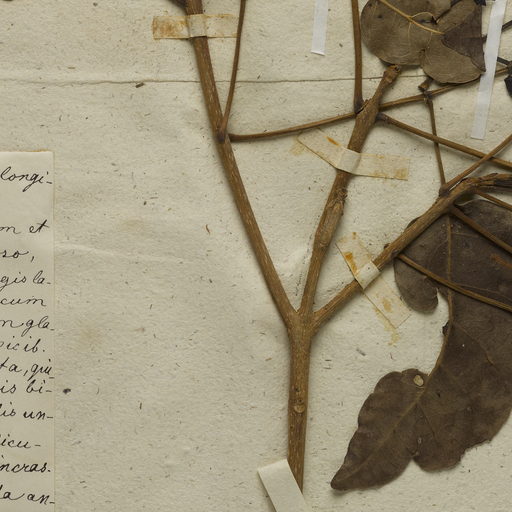 longi-
m et
so,
gisla-
cum
n gla
picib.
ta, qui
is bi-
lis un-
dicu-
incras.
la an-